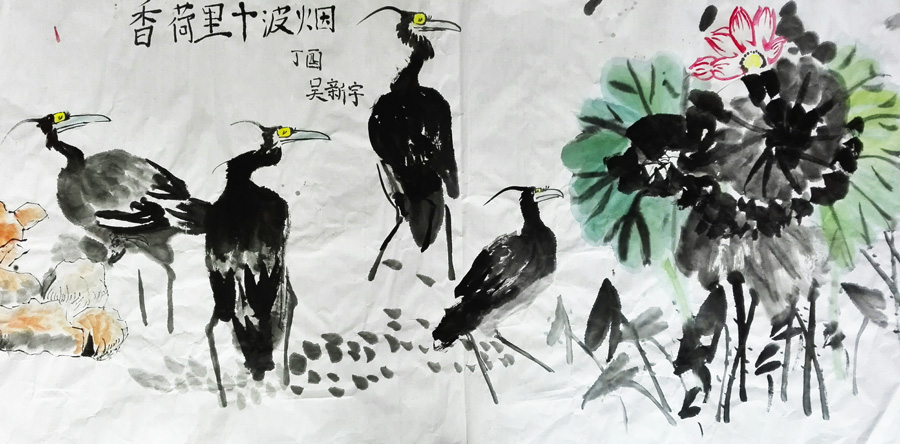 烟波十里荷香
丁酉
吴新宇